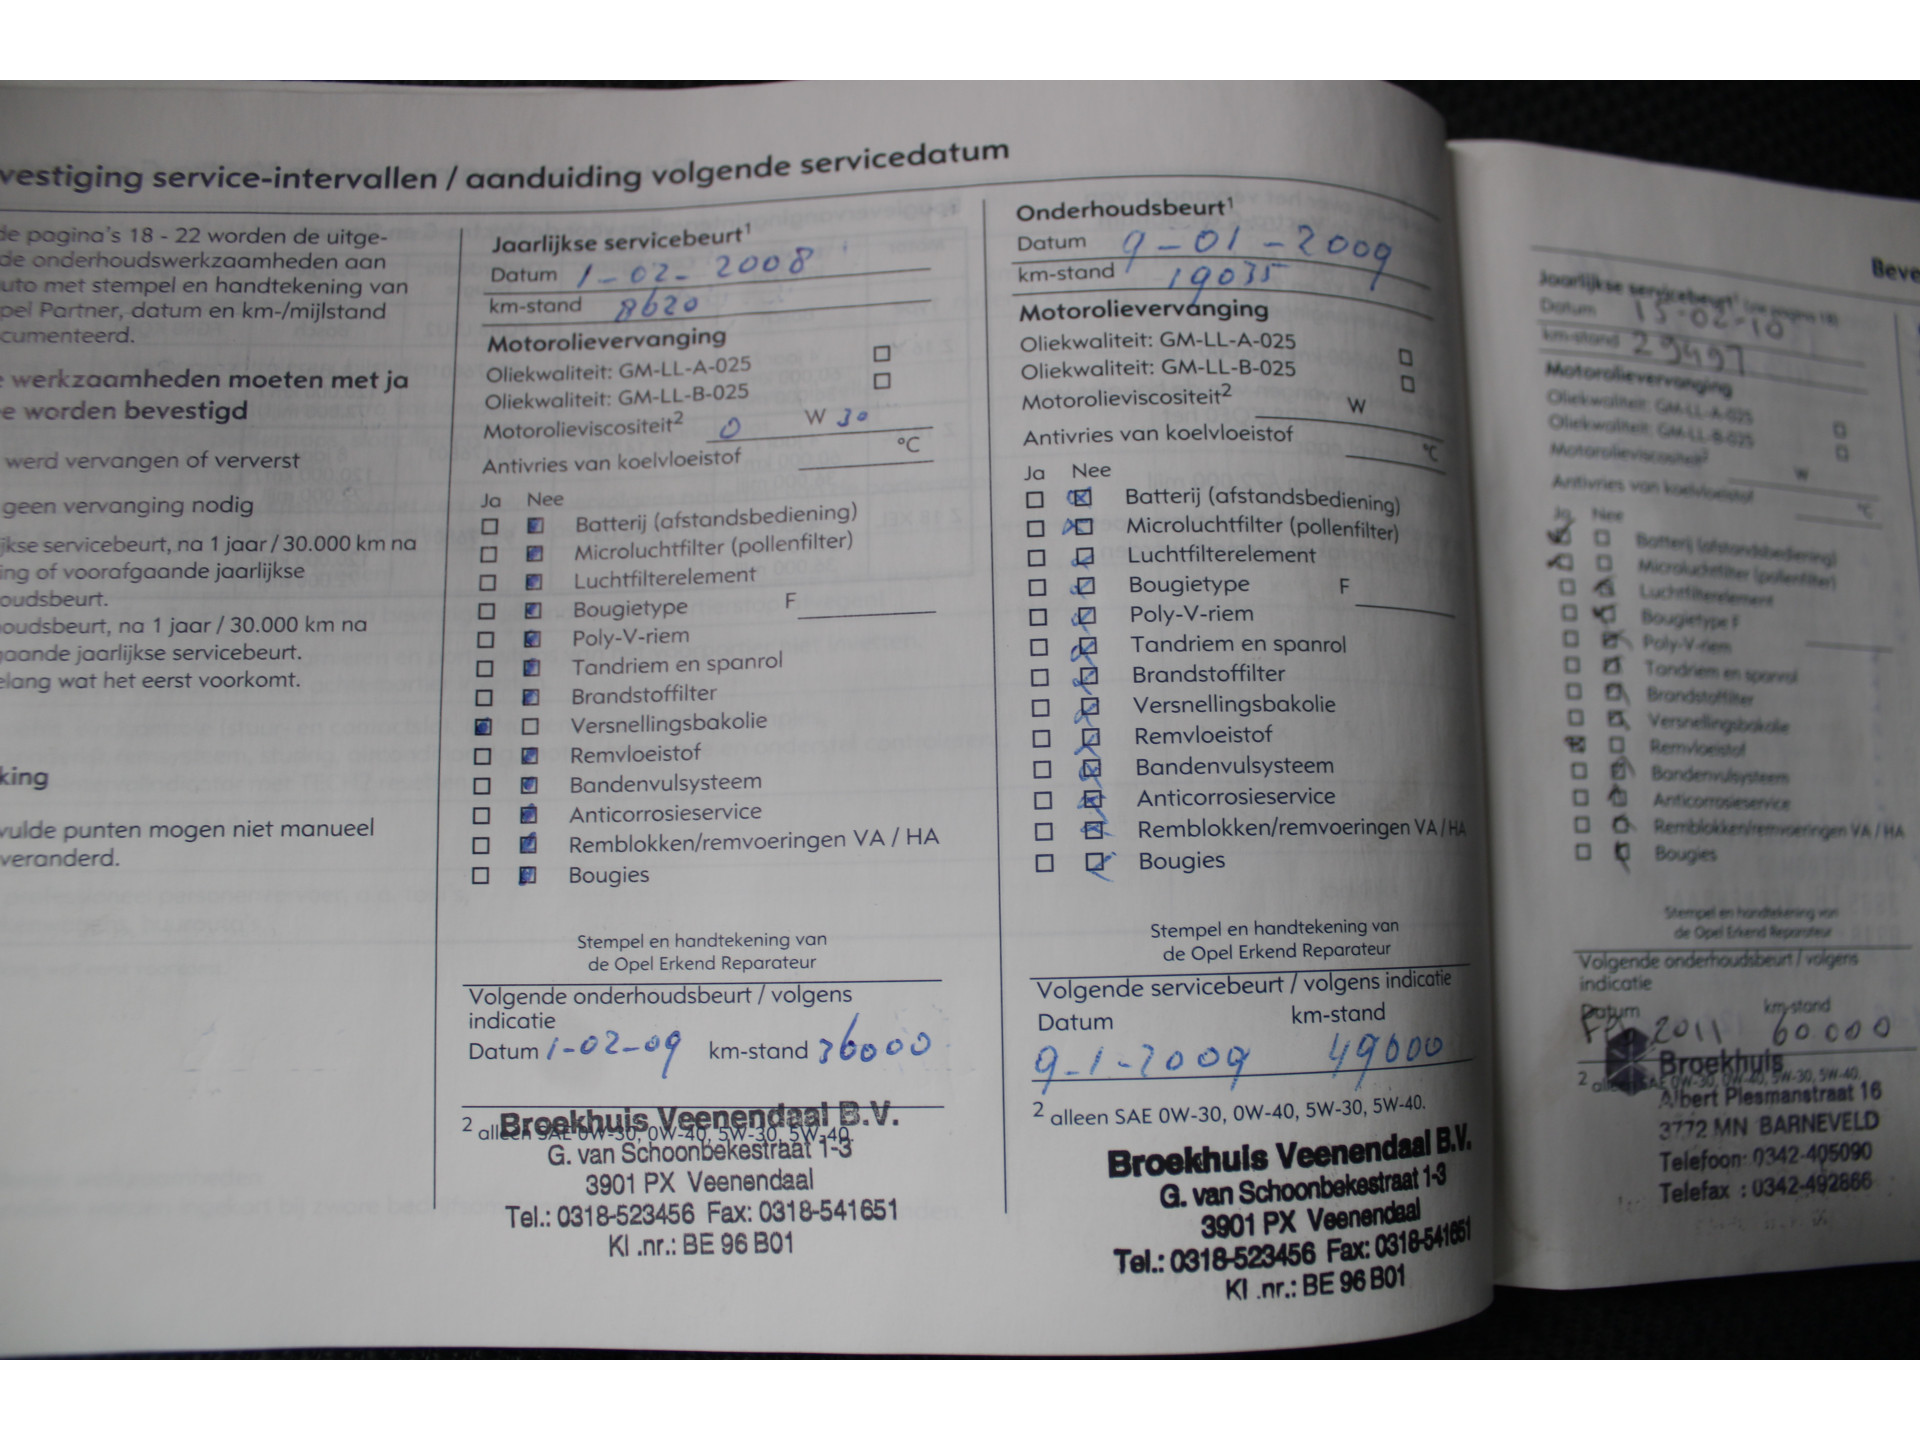 vestiging service-intervallen / aanduiding volgende servicedatum
de pagina's 18 - 22 worden de uitge-
de onderhoudswerkzaamheden aan
uto met stempel en handtekening van
pel Partner, datum en km-/mijlstand
cumenteerd.
e werkzaamheden moeten met ja
e worden bevestigd
werd vervangen of ververst
geen vervanging nodig
ijkse servicebeurt, na 1 jaar / 30.000 km na
ing of voorafgaande jaarlijkse
oudsbeurt.
oudsbeurt, na 1 jaar / 30.000 km na
gaande jaarlijkse servicebeurt.
elang wat het eerst voorkomt.
king
vulde punten mogen niet manueel
veranderd.
Jaarlijkse servicebeurt1
Datum 1-02-2008
km-stand 8620
Motorolievervanging
Oliekwaliteit: GM-LL-A-025
Oliekwaliteit: GM-LL-B-025
Motorolieviscositeit2 0 W 30
Antivries van koelvloeistof °C
Ja Nee
Batterij (afstandsbediening)
Microluchtfilter (pollenfilter)
Luchtfilterelement
Bougietype F
Poly-V-riem
Tandriem en spanrol
Brandstoffilter
Versnellingsbakolie
Remvloeistof
Bandenvulsysteem
Anticorrosieservice
Remblokken/remvoeringen VA / HA
Bougies
Stempel en handtekening van
de Opel Erkend Reparateur
Volgende onderhoudsbeurt / volgens
indicatie
Datum 1-02-09 km-stand 36000
Broekhuis Veenendaal B.V.
2 alleen SAE 0W-30, 0W-40, 5W-30, 5W-40.
G. van Schoonbekestraat 1-3
3901 PX Veenendaal
Tel.: 0318-523456 Fax: 0318-541651
Kl .nr.: BE 96 B01
Onderhoudsbeurt1
Datum 9-01-2009
km-stand 19035
Motorolievervanging
Oliekwaliteit: GM-LL-A-025
Oliekwaliteit: GM-LL-B-025
Motorolieviscositeit2 W
Antivries van koelvloeistof °C
Ja Nee
Batterij (afstandsbediening)
Microluchtfilter (pollenfilter)
Luchtfilterelement
Bougietype F
Poly-V-riem
Tandriem en spanrol
Brandstoffilter
Versnellingsbakolie
Remvloeistof
Bandenvulsysteem
Anticorrosieservice
Remblokken/remvoeringen VA / HA
Bougies
Stempel en handtekening van
de Opel Erkend Reparateur
Volgende servicebeurt / volgens indicatie
Datum km-stand
9-1-2009 49000
2 alleen SAE 0W-30, 0W-40, 5W-30, 5W-40.
Broekhuis Veenendaal B.V.
G. van Schoonbekestraat 1-3
3901 PX Veenendaal
Tel.: 0318-523456 Fax: 0318-541651
Kl .nr.: BE 96 B01
Beve
Jaarlijkse servicebeurt1
Datum 15-02-10
km-stand 29497
Motorolievervanging
Oliekwaliteit: GM-LL-A-025
Oliekwaliteit: GM-LL-B-025
Motorolieviscositeit2 W
Antivries van koelvloeistof °C
Ja Nee
Batterij (afstandsbediening)
Microluchtfilter (pollenfilter)
Luchtfilterelement
Bougietype F
Poly-V-riem
Tandriem en spanrol
Brandstoffilter
Versnellingsbakolie
Remvloeistof
Bandenvulsysteem
Anticorrosieservice
Remblokken/remvoeringen VA / HA
Bougies
Stempel en handtekening van
de Opel Erkend Reparateur
Volgende onderhoudsbeurt / volgens
indicatie
Datum km-stand
2011 60.000
Broekhuis
Albert Plesmanstraat 16
3772 MN BARNEVELD
Telefoon: 0342-405090
Telefax : 0342-492866